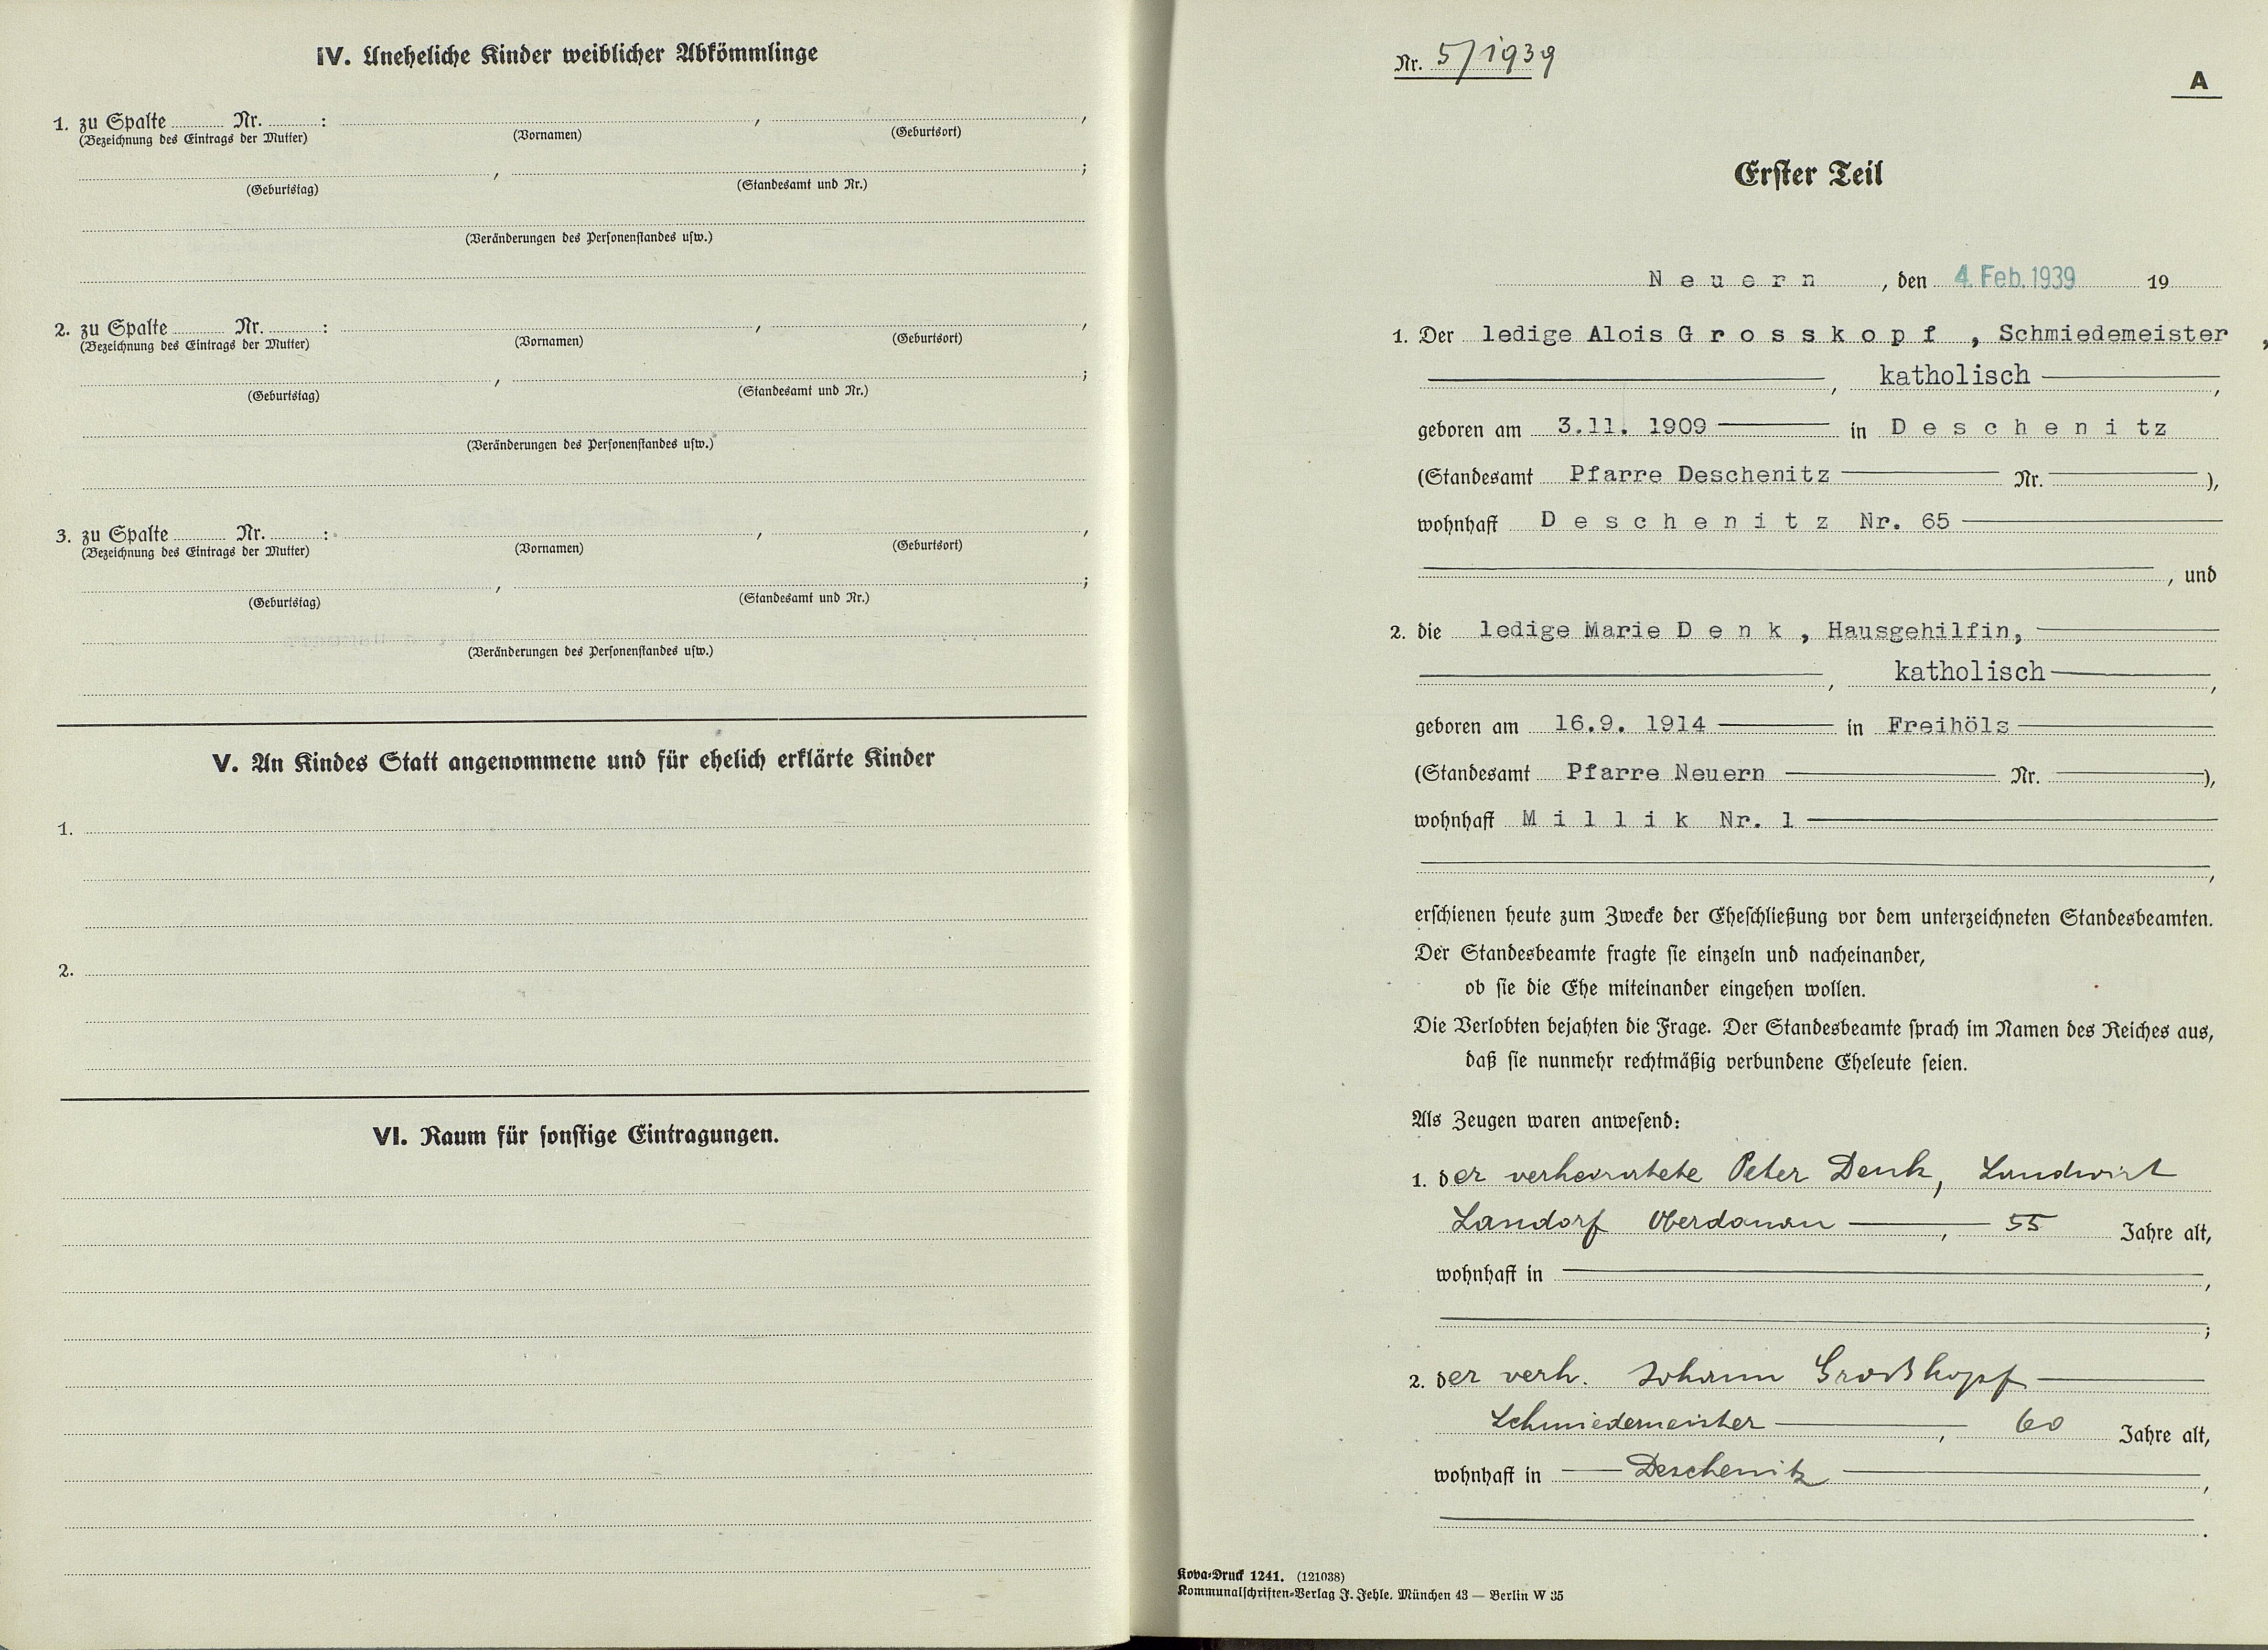 IV. Uneheliche Kinder weiblicher Abkömmlinge
1. zu Spalte ........ Nr. ........ : ........ , ........ ,
(Bezeichnung des Eintrags der Mutter) (Vornamen) (Geburtsort)
........ , ........ ;
(Geburtstag) (Standesamt und Nr.)
(Veränderungen des Personenstandes usw.)
2. zu Spalte ........ Nr. ........ : ........ , ........ ,
(Bezeichnung des Eintrags der Mutter) (Vornamen) (Geburtsort)
........ , ........ ;
(Geburtstag) (Standesamt und Nr.)
(Veränderungen des Personenstandes usw.)
3. zu Spalte ........ Nr. ........ : ........ , ........ ,
(Bezeichnung des Eintrags der Mutter) (Vornamen) (Geburtsort)
........ , ........ ;
(Geburtstag) (Standesamt und Nr.)
(Veränderungen des Personenstandes usw.)
V. An Kindes Statt angenommene und für ehelich erklärte Kinder
1.
2.
VI. Raum für sonstige Eintragungen.
Nr. 5/1939
A
Erster Teil
Neuern , den 4. Feb. 1939 19
1. Der ledige Alois Grosskopf , Schmiedemeister ,
, katholisch ,
geboren am 3.11. 1909 in Deschenitz
(Standesamt Pfarre Deschenitz Nr. ),
wohnhaft Deschenitz Nr. 65
, und
2. die ledige Marie Denk , Hausgehilfin,
, katholisch ,
geboren am 16.9. 1914 in Freihöls
(Standesamt Pfarre Neuern Nr. ),
wohnhaft Millik Nr. 1
,
erschienen heute zum Zwecke der Eheschließung vor dem unterzeichneten Standesbeamten.
Der Standesbeamte fragte sie einzeln und nacheinander,
ob sie die Ehe miteinander eingehen wollen.
Die Verlobten bejahten die Frage. Der Standesbeamte sprach im Namen des Reiches aus,
daß sie nunmehr rechtmäßig verbundene Eheleute seien.
Als Zeugen waren anwesend:
1. der verheiratete Peter Denk, Landwirt
Landorf Oberdonau , 55 Jahre alt,
wohnhaft in ,
;
2. der verh. Johann Großkopf
Schmiedemeister , 60 Jahre alt,
wohnhaft in Deschenitz ,
.
Kova-Druck 1241. (121038)
Kommunalschriften-Verlag J. Jehle. München 43 — Berlin W 35